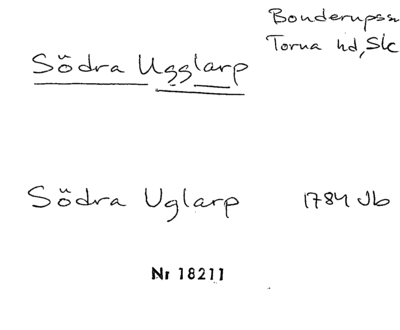 Bonderupssn
Torna hd, Sk
Södra Ugglarp
Södra Uglarp 1784 Jb
Nr 18211